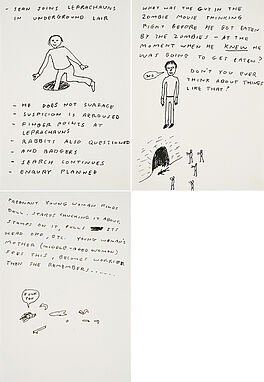 - SEAN JOINS LEPRACHAUNS
IN UNDERGROUND LAIR
- HE DOES NOT SURFACE
- SUSPICION IS AROUSED
- FINGER POINTS AT
LEPRACHAUNS
- RABBITS ALSO QUESTIONED
- AND BADGERS
- SEARCH CONTINUES
- ENQUIRY PLANNED
WHAT WAS THE GUY IN THE
ZOMBIE MOVIE THINKING
RIGHT BEFORE HE GOT EATEN
BY THE ZOMBIES - AT THE
MOMENT WHEN HE KNEW HE
WAS GOING TO GET EATEN?
NO
DON'T YOU EVER
THINK ABOUT THINGS
LIKE THAT?
PREGNANT YOUNG WOMAN FINDS
DOLL, STARTS CHUCKING IT ABOUT,
STAMPS ON IT, PULLS ITS
HEAD OFF, ETC. YOUNG WOMAN'S
MOTHER (MIDDLE-AGED WOMAN)
SEES THIS, BECOMES WORRIED
THEN SHE REMEMBERS......